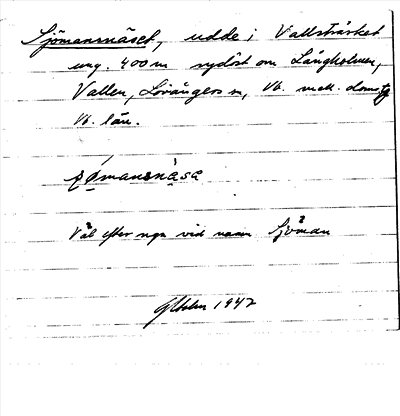 Sjömansnäset, udde i Vallsträsket
ung. 400 m sydöst om Långholmen,
Vallen, Lövångers sn, Vb. mell. doms
Vb. län.
Väl efter ngn vid namn Sjöman
1942